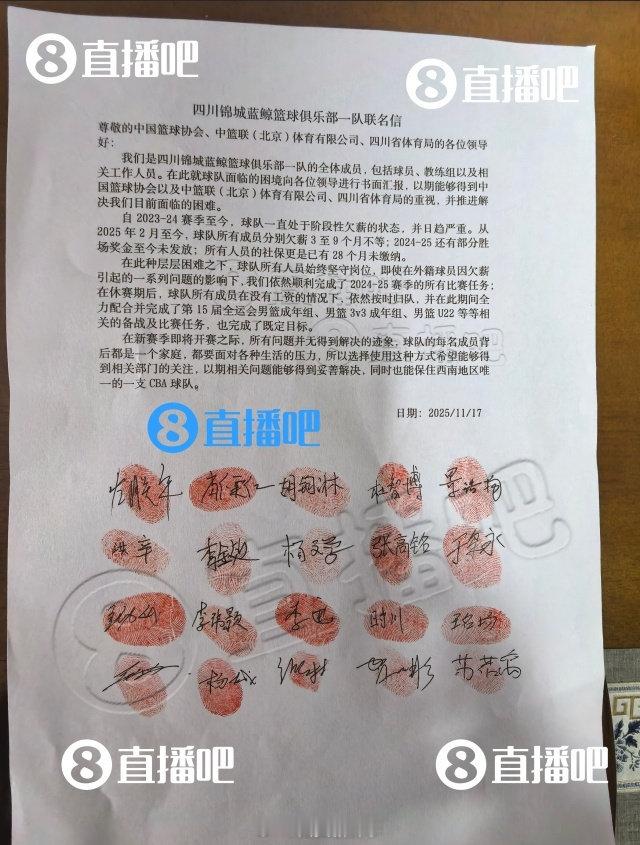 8直播吧
8直播吧
四川锦城蓝鲸篮球俱乐部一队联名信
尊敬的中国篮球协会、中篮联（北京）体育有限公司、四川省体育局的各位领导
好：
我们是四川锦城蓝鲸篮球俱乐部一队的全体成员，包括球员、教练组以及相
关工作人员。在此就球队面临的困境向各位领导进行书面汇报，以期能够得到中
国篮球协会以及中篮联（北京）体育有限公司、四川省体育局的重视，并推进解
决我们目前面临的困难。
自 2023-24 赛季至今，球队一直处于阶段性欠薪的状态，并日趋严重。从
2025 年 2 月至今，球队所有成员分别欠薪 3 至 9 个月不等；2024-25 还有部分胜
场奖金至今未发放；所有人员的社保更是已有 28 个月未缴纳。
在此种层层困难之下，球队所有人员始终坚守岗位，即使在外籍球员因欠薪
引起的一系列问题的影响下，我们依然顺利完成了 2024-25 赛季的所有比赛任务；
在休赛期后，球队所有成员在没有工资的情况下，依然按时归队，并在此期间全
力配合并完成了第 15 届全运会男篮成年组、男篮 3v3 成年组、男篮 U22 等等相
关的备战及比赛任务，也完成了既定目标。
在新赛季即将开赛之际，所有问题并无得到解决的迹象，球队的每名成员背
后都是一个家庭，都要面对各种生活的压力，所以选择使用这种方式希望能够得
到相关部门的关注，以期相关问题能够得到妥善解决，同时也能保住西南地区唯
一的一支 CBA 球队。
日期：2025/11/17
8直播吧
杜智博 景浩扬
张高铭
李张颢 季迅 时川
苏若禹
8直播吧
8直播吧
8直播吧